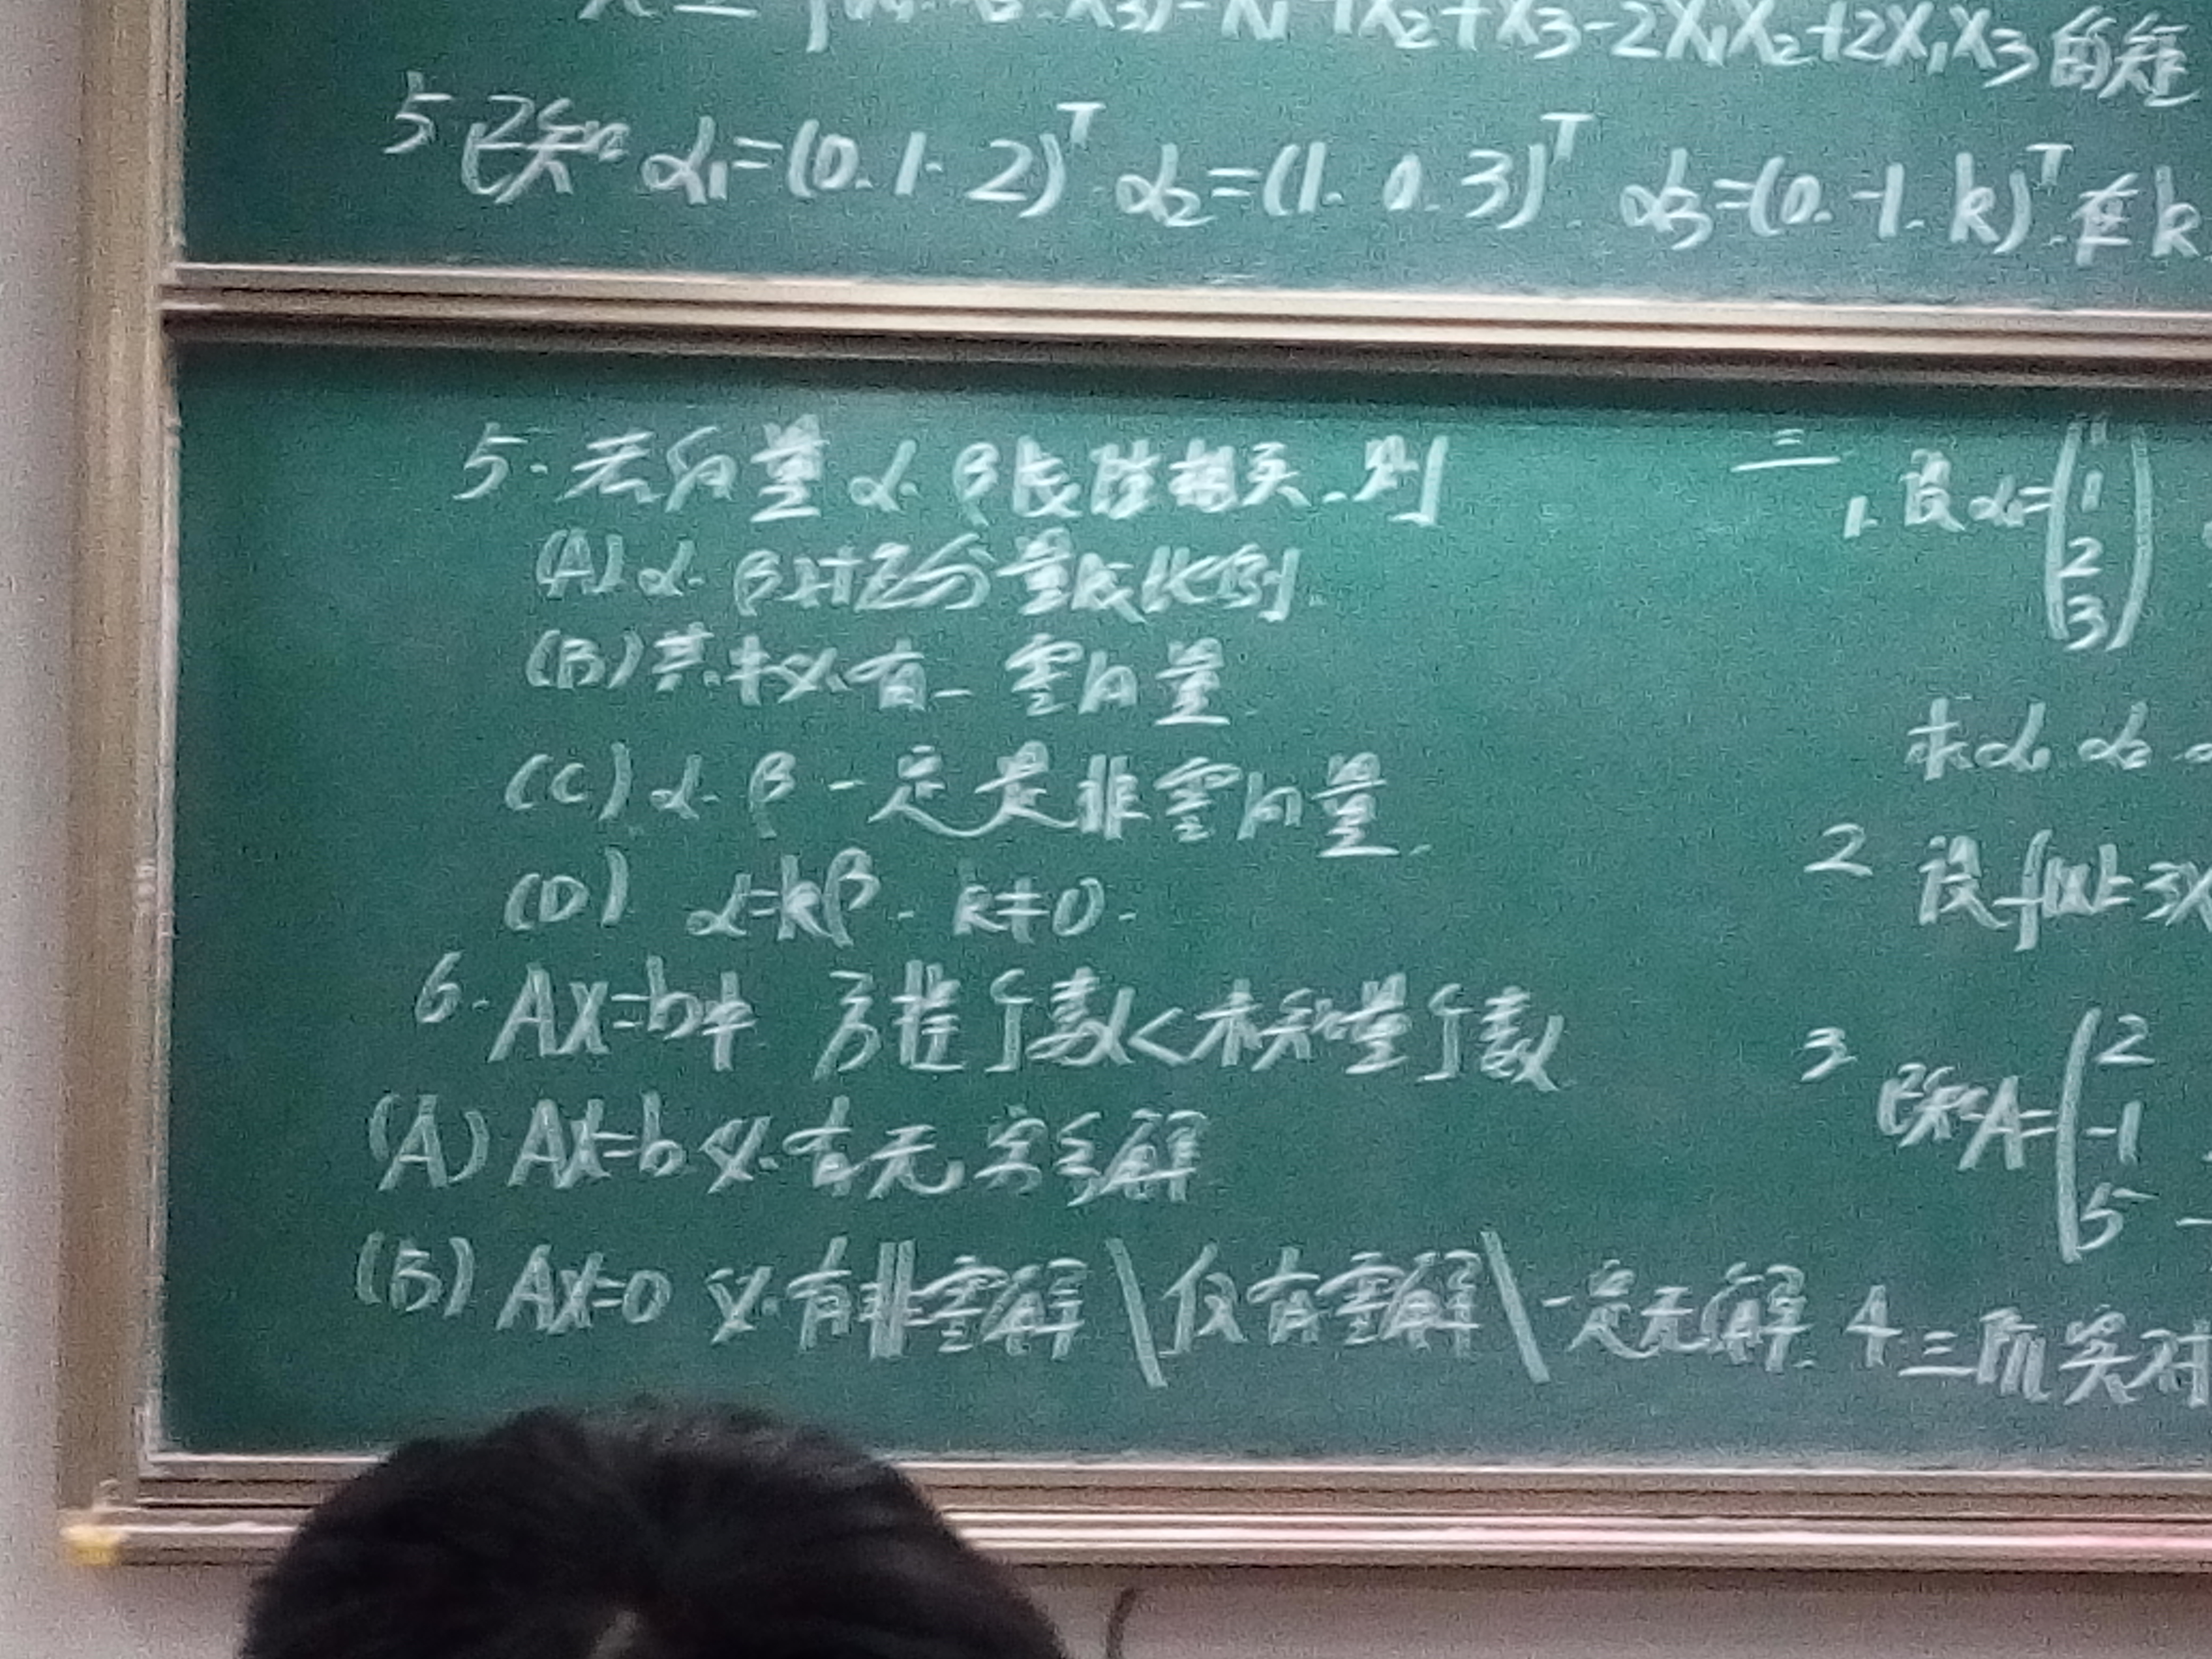 x₂²+x₃²-2x₁x₂+2x₁x₃的矩
5 已知 α₁=(0.1.2)ᵀ α₂=(1.0.3)ᵀ. α₃=(0.-1.k)ᵀ.若k
5. 若向量α.β线性相关.则
(A) α.β对应分量成比例.
(B) 其中必有一零向量
(C) α.β一定是非零向量.
(D) α=kβ. k≠0.
6. Ax=b中 方程个数<未知量个数
(A) Ax=b必有无穷多解
(B) Ax=0 必有非零解\仅有零解\一定无解.
三
1. 设α₁=(1 1 2 3)
求α₁ α₂
2 设f(x)=3x
3 已知A=(2 -1 5
4 三阶实对